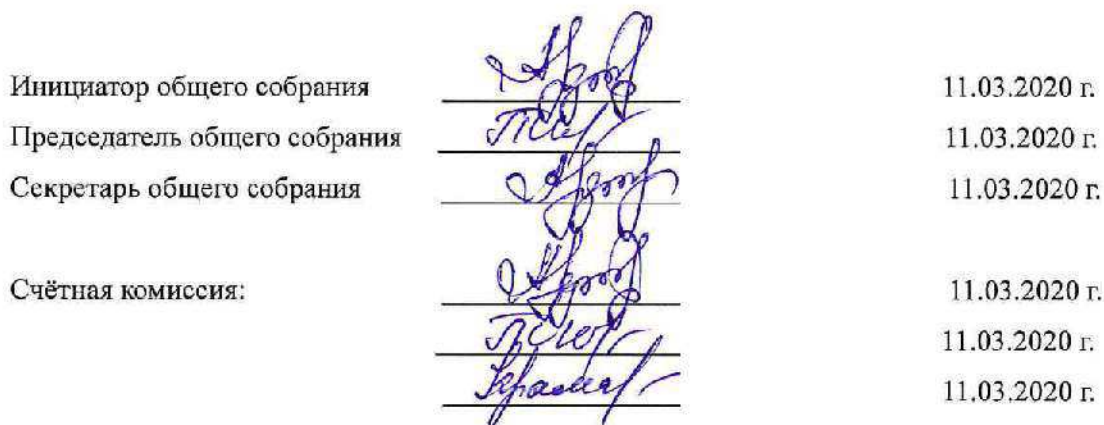 Инициатор общего собрания 11.03.2020 г.
Председатель общего собрания 11.03.2020 г.
Секретарь общего собрания 11.03.2020 г.
Счётная комиссия: 11.03.2020 г.
11.03.2020 г.
11.03.2020 г.